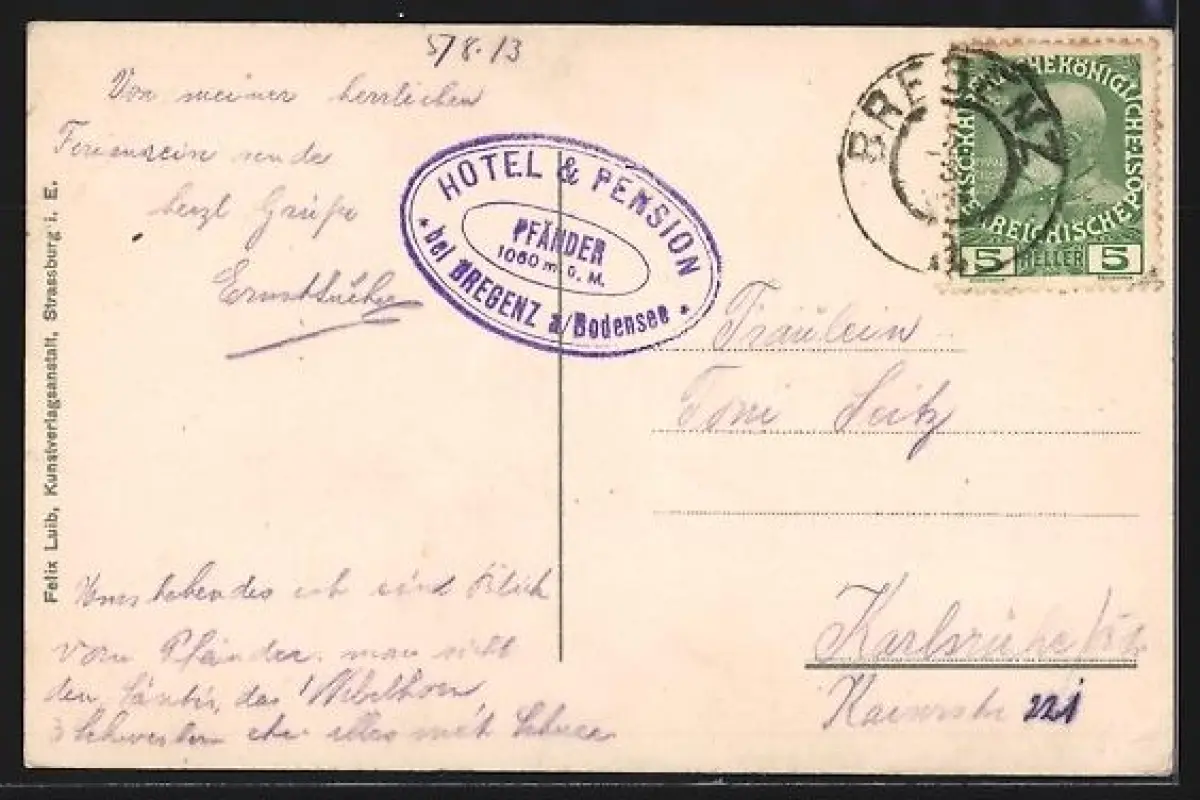 5/8.13
Von meiner herrlichen
sende
herzl Grüße
HOTEL & PENSION
PFÄNDER
1060 m ü. M.
* bei BREGENZ a/Bodensee *
BREGENZ
KAISERLICHE KÖNIGLICHE ÖSTERREICHISCHE POST
5 HELLER 5
Fräulein
Toni Seitz
Karlsruhe
Kaiserstr 221
Umstehendes ist eine Blick
vom Pfänder. man sieht
den Säntis, das
3 Schwestern etc. alles mit Schnee
Felix Luib, Kunstverlagsanstalt, Strassburg i. E.